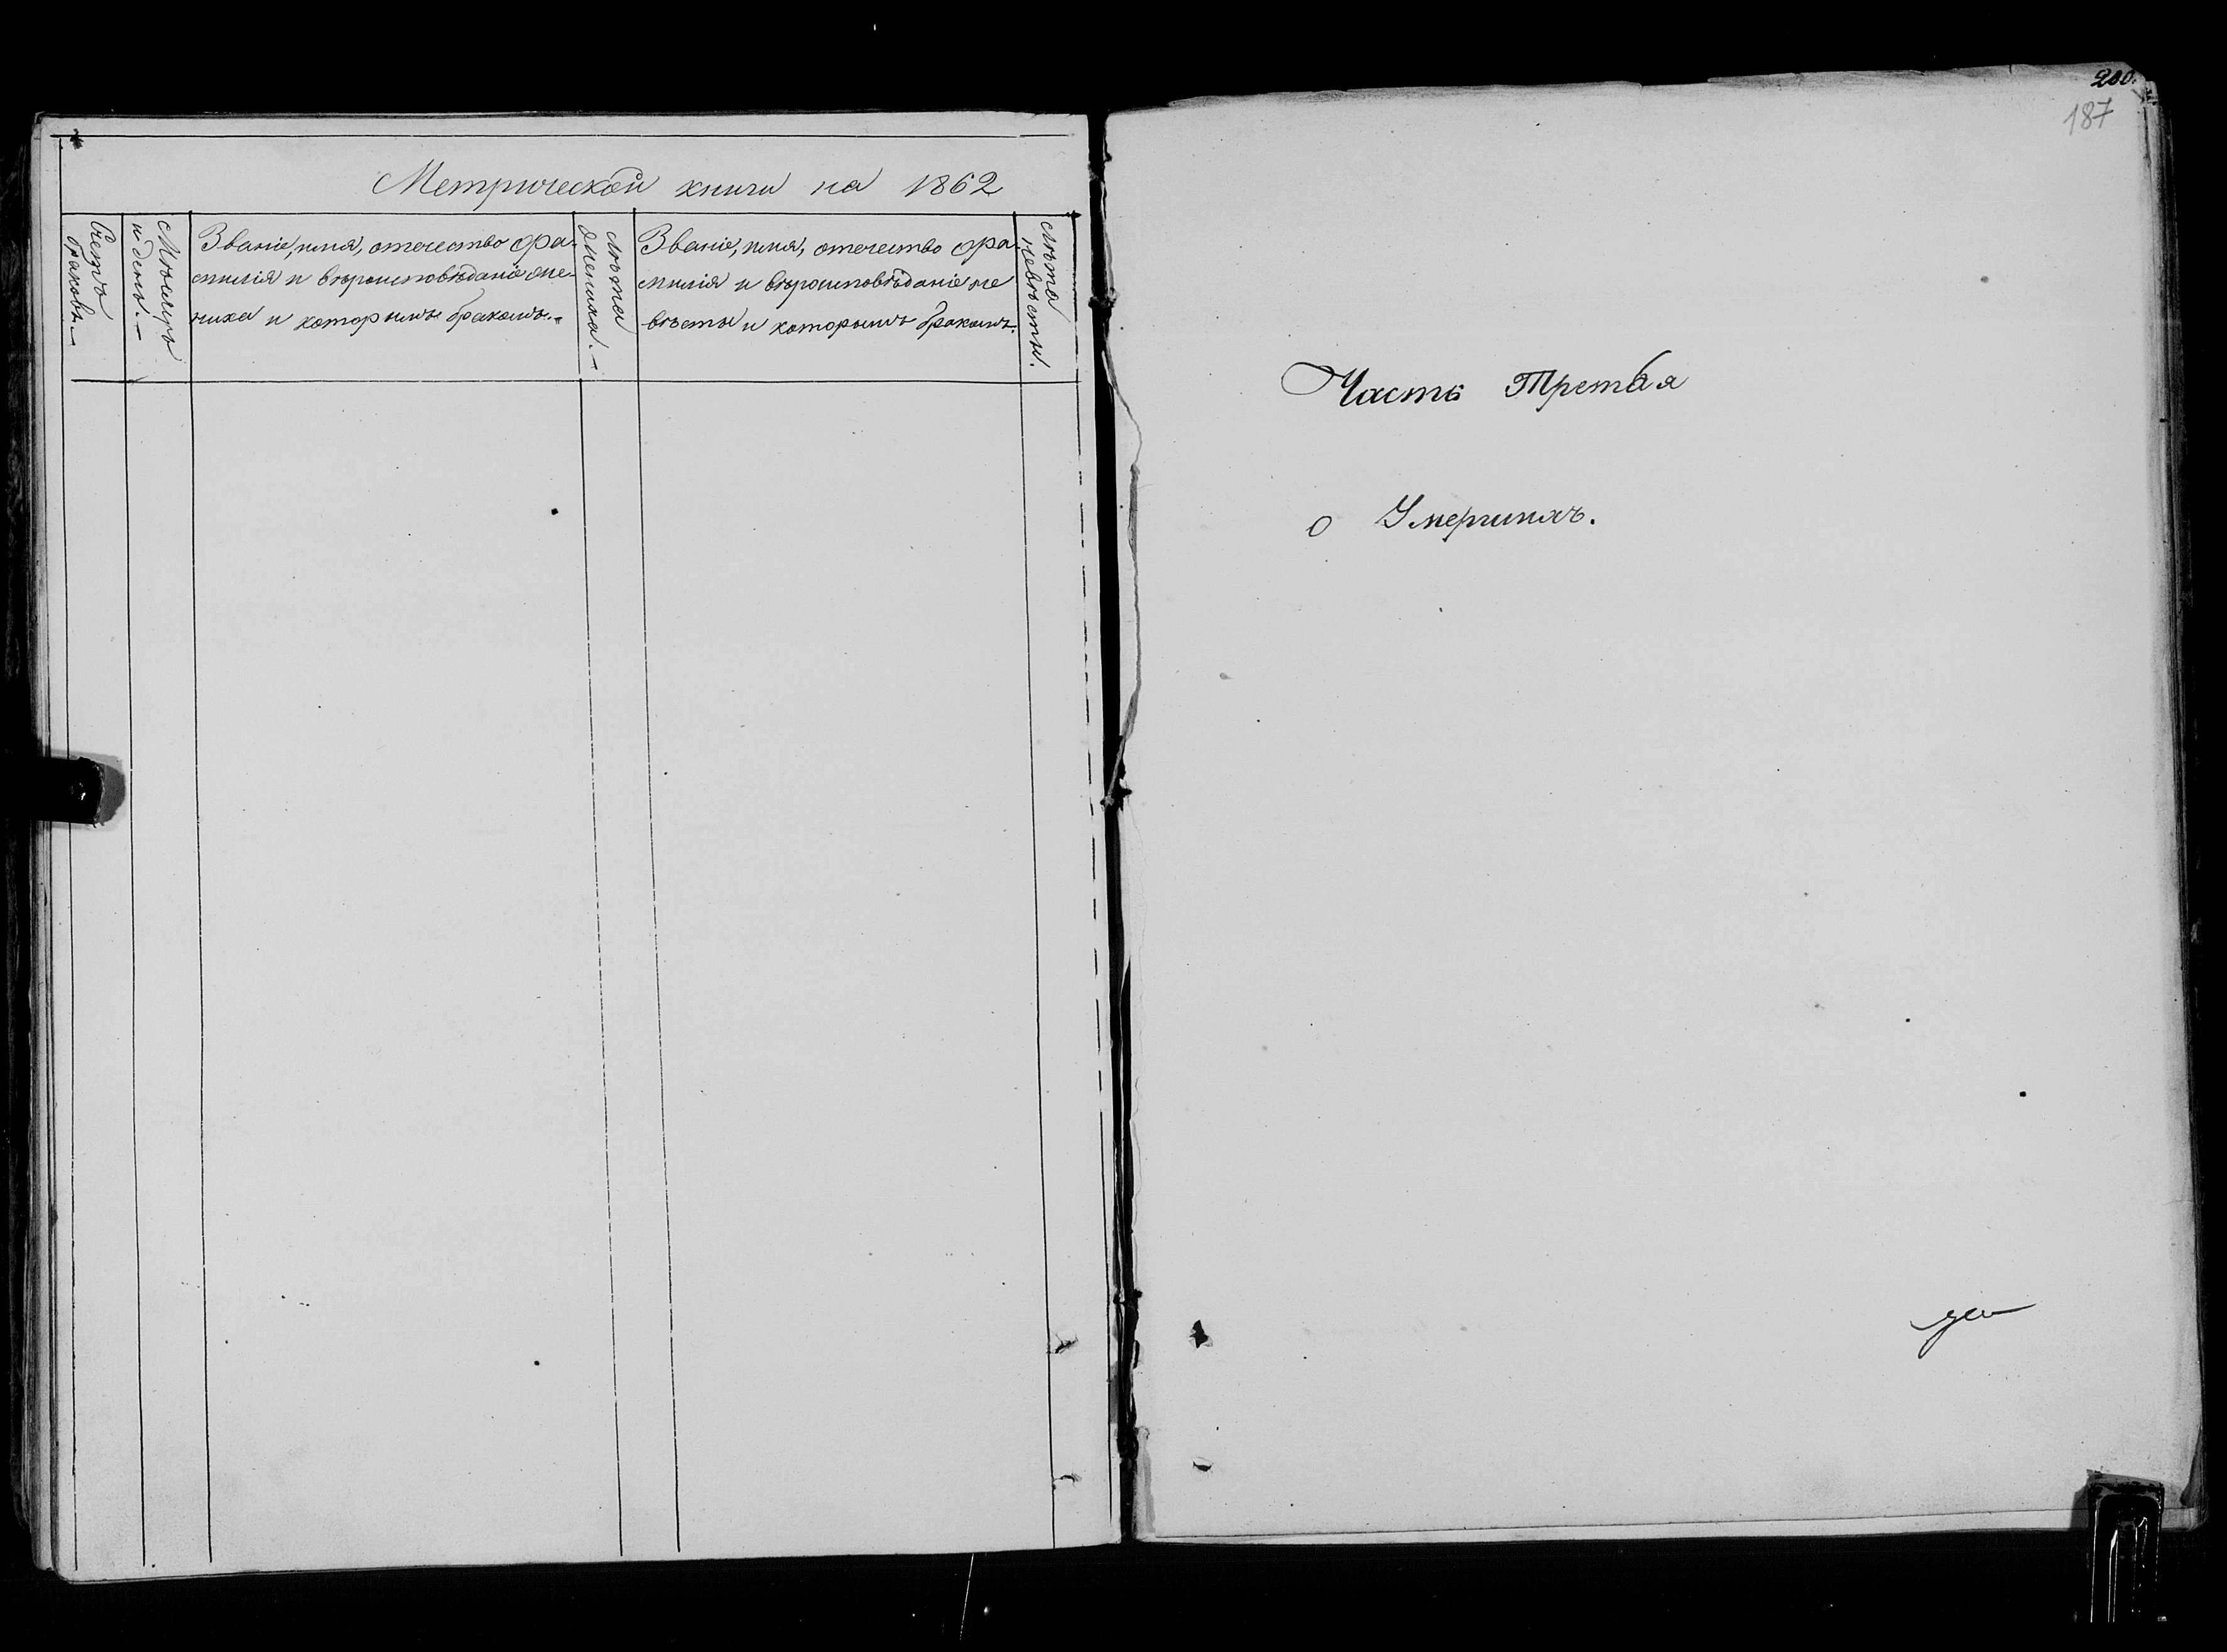 Метрической книги на 1862
Счетъ
браковъ.
Мѣсяцъ
и день.
Званіе, имя, отечество фа-
милія и вѣроисповѣданіе же-
ниха и которымъ бракомъ.
Лѣта
жениха.
Званіе, имя, отечество фа-
милія и вѣроисповѣданіе не
вѣсты и которымъ бракомъ.
Лѣта
невѣсты.
200.
187
Часть Третья
о Умершихъ.